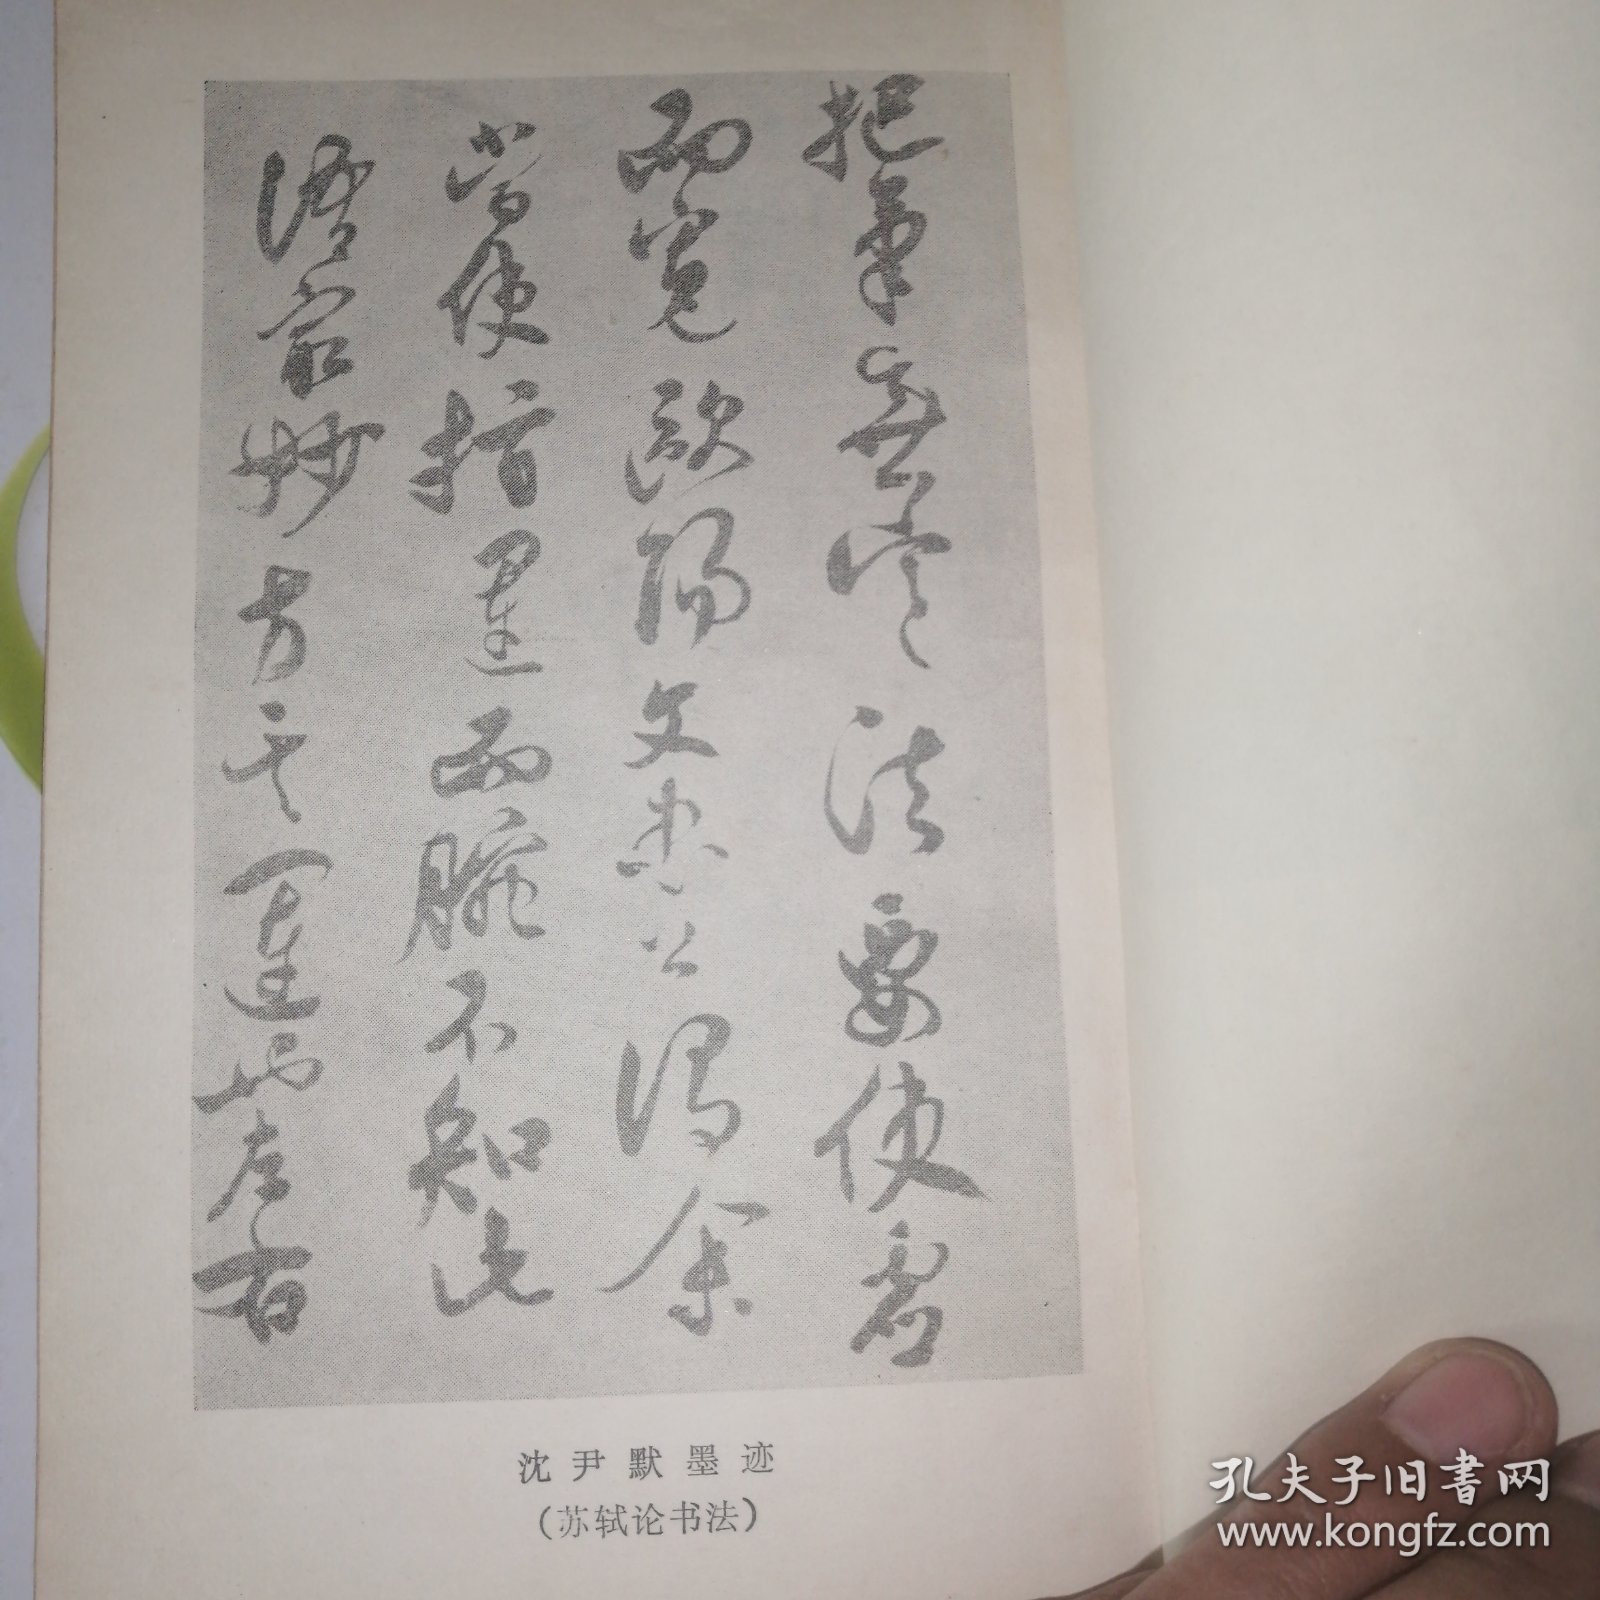 把笔無定法要使虚
而宽欧阳文忠公谓余
当使指運而腕不知此
语最妙方其運也左右
沈尹默墨迹
（苏轼论书法）
孔夫子旧書网
www.kongfz.com